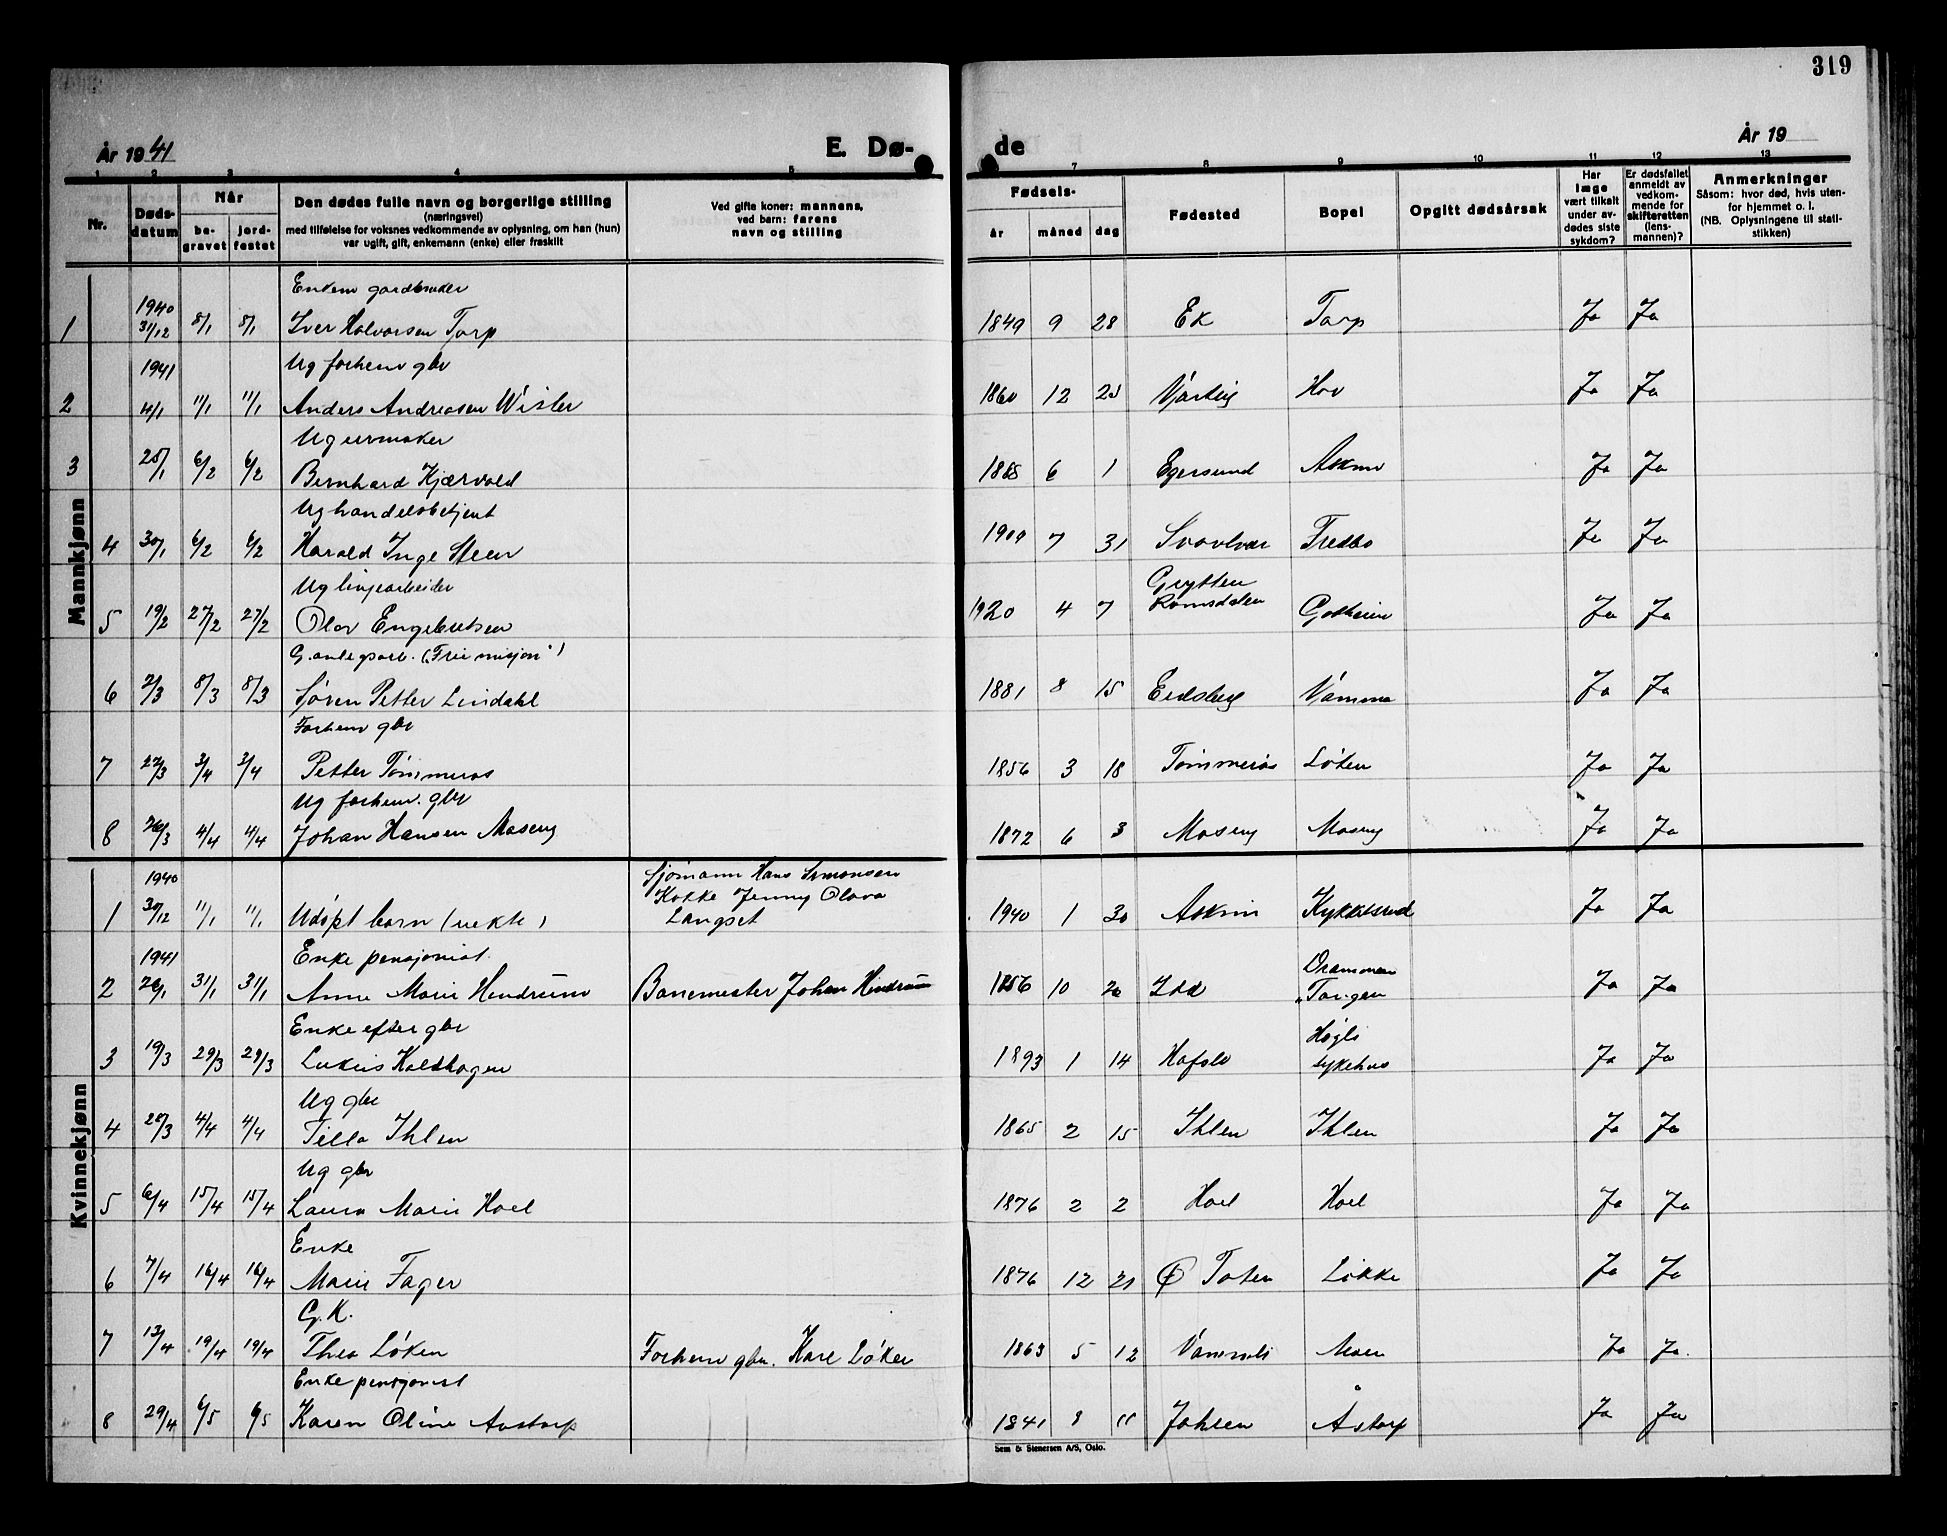 319
År 1941
E. Dø-
de
År 19
1 2 3 4 5
7 8 9 10 11 12 13
Nr.
Døds-
datum
Når
be-
gravet
jord-
festet
Den dødes fulle navn og borgerlige stilling
(næringsvei)
med tilføielse for voksnes vedkommende av oplysning, om han (hun)
var ugift, gift, enkemann (enke) eller fraskilt
Ved gifte koner: mannens,
ved barn: farens
navn og stilling
Fødsels-
år måned dag
Fødested
Bopel
Opgitt dødsårsak
Har
læge
vært tilkalt
under av-
dødes siste
sykdom?
Er dødsfallet
anmeldt av
vedkom-
mende for
skifteretten
(lens-
mannen)?
Anmerkninger
Såsom: hvor død, hvis uten-
for hjemmet o. l.
(NB. Oplysningene til stati-
stikken)
Mannkjønn
Enkem gardbruker
1 1940 31/12 8/1 8/1 Iver Halvorsen Torp 1849 9 28 Ek Torp Ja Ja
Ug forhenv gbr
2 1941 4/1 11/1 11/1 Anders Andreasen Wister 1860 12 Hov Ja Ja
Ug urmaker
3 6/2 6/2 Bernhard Kjærvold 6 1 Egersund Askim Ja Ja
Ug handelsbetjent
4 30/1 6/2 6/2 Harald Inge Steen 1909 7 31 Svovlvær Fredbo Ja Ja
Ug linjearbeider
5 19/2 27/2 27/2 Olav Engebretsen 1920 4 7 Grytten
Romsdalen Gotheim Ja Ja
G. anlegsarb. ("Frie misjon")
6 2/3 8/3 8/3 Søren Petter Lindahl 1881 8 15 Eidsberg Vamma Ja Ja
Forhenv gbr
7 27/3 3/4 3/4 Petter Tømmerås 1856 3 18 Tømmerås Løken Ja Ja
Ug forhenv. gbr
8 26/3 4/4 4/4 Johan Hansen Moseng 1872 6 3 Moseng Moseng Ja Ja
Kvinnekjønn
Sjømann Hans Simonsen
Kokke Jenny Olava
Langset
1 1940 30/12 11/1 11/1 Udøpt barn (uekte) 1940 1 30 Askim Kykkelsrud Ja Ja
Enke pensjonist.
2 1941 26/1 31/1 31/1 Anne Marie Hendrum Banemester Johan Hendrum 1856 10 26 Idd Drammen
"Tangen Ja Ja
Enke efter gbr
3 19/3 29/3 29/3 Lukris Kaldhagen 1893 1 14 Hafslo Høgli
sykehus Ja Ja
Ug gbr
4 28/3 4/4 4/4 Tilla Ihlen 1865 2 15 Ihlen Ihlen Ja Ja
Ug gbr
5 6/4 15/4 15/4 Laura Marie Hoel 1876 2 2 Hoel Hoel Ja Ja
Enke
6 7/4 16/4 16/4 Marie Fager 1876 12 21 Ø Toten Løkke Ja Ja
G. K.
7 13/4 19/4 19/4 Thea Løken Forhenv gbr. Kare Løken 1863 5 12 Vammeli Moen Ja Ja.
Enke pensjonist
8 29/4 6/5 6/5 Karen Oline Aastorp 1841 8 11 Johlen Åstorp Ja Ja
Sem & Stenersen A/S, Oslo.